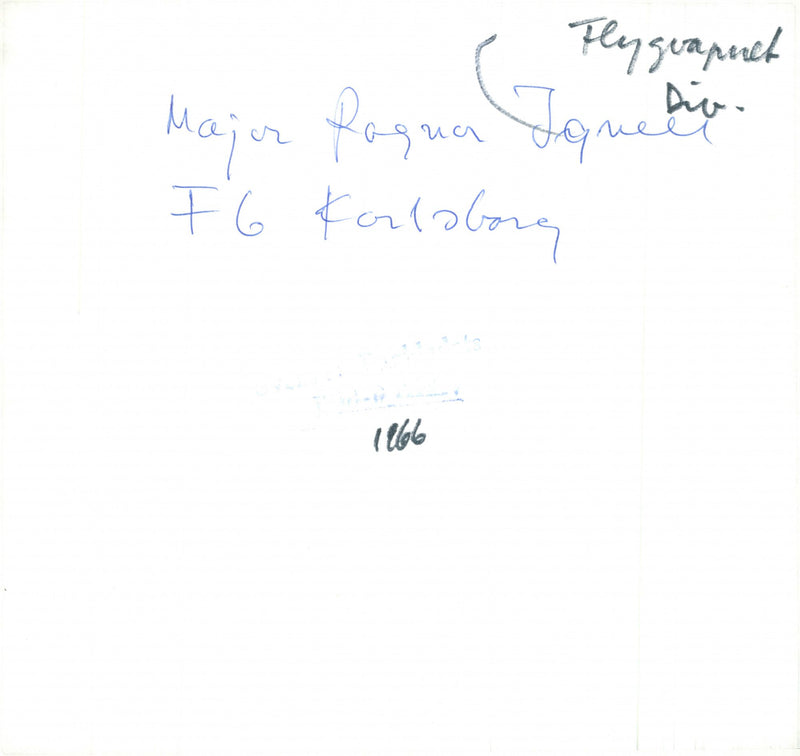 Flygvapnet
Div.
Major Ragnar Ignell
F6 Karlsborg
1966